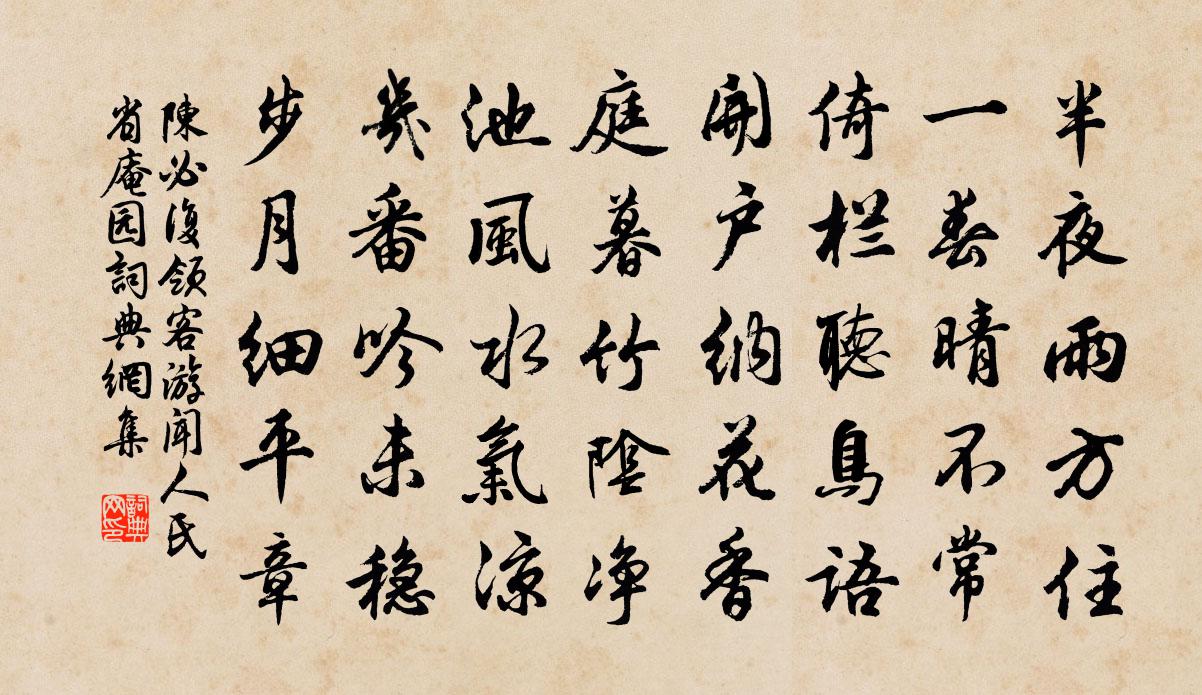 半夜雨方住
一春晴不常
倚栏聽鳥語
開户納花香
庭暮竹陰净
池風水氣涼
幾番吟未穏
步月细平章
陳必復領客游聞人民
省庵园詞典網集
詞典
网印